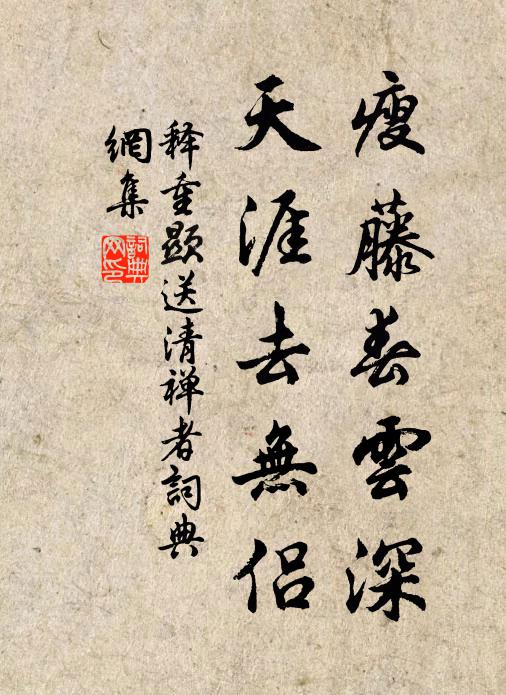 瘦藤春雲深
天涯去無侶
释重顯送清禅者詞典
網集
詞典
网印